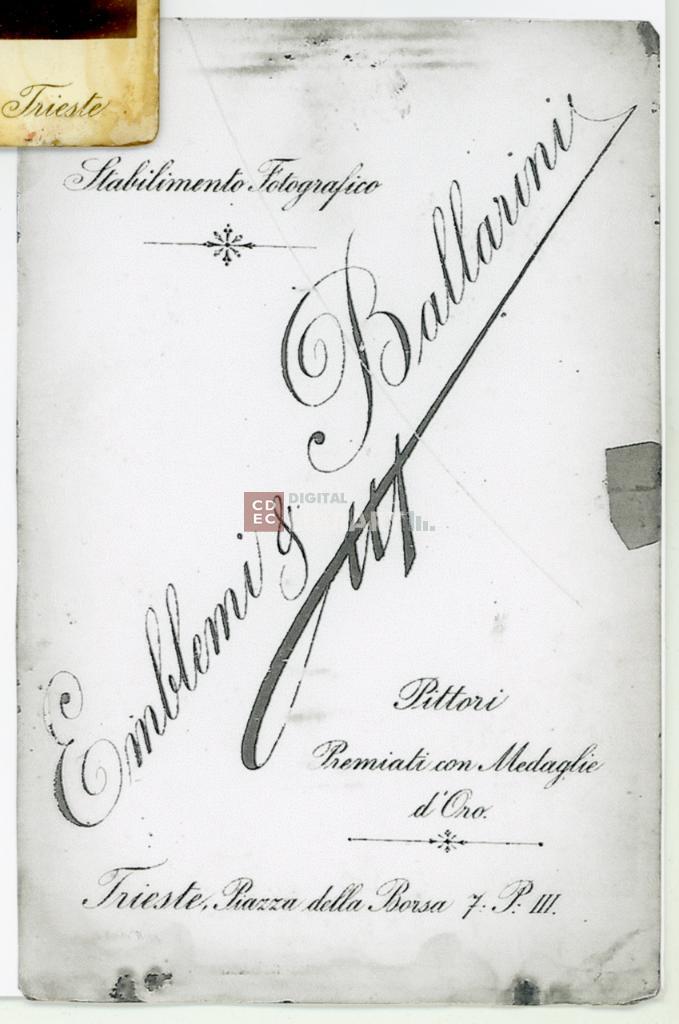 Trieste
Stabilimento Fotografico
Ballarini
Emblemi &
CD
EC
DIGITAL
Pittori
Premiati con Medaglie
d'Oro.
Trieste, Piazza della Borsa 7. P. III.